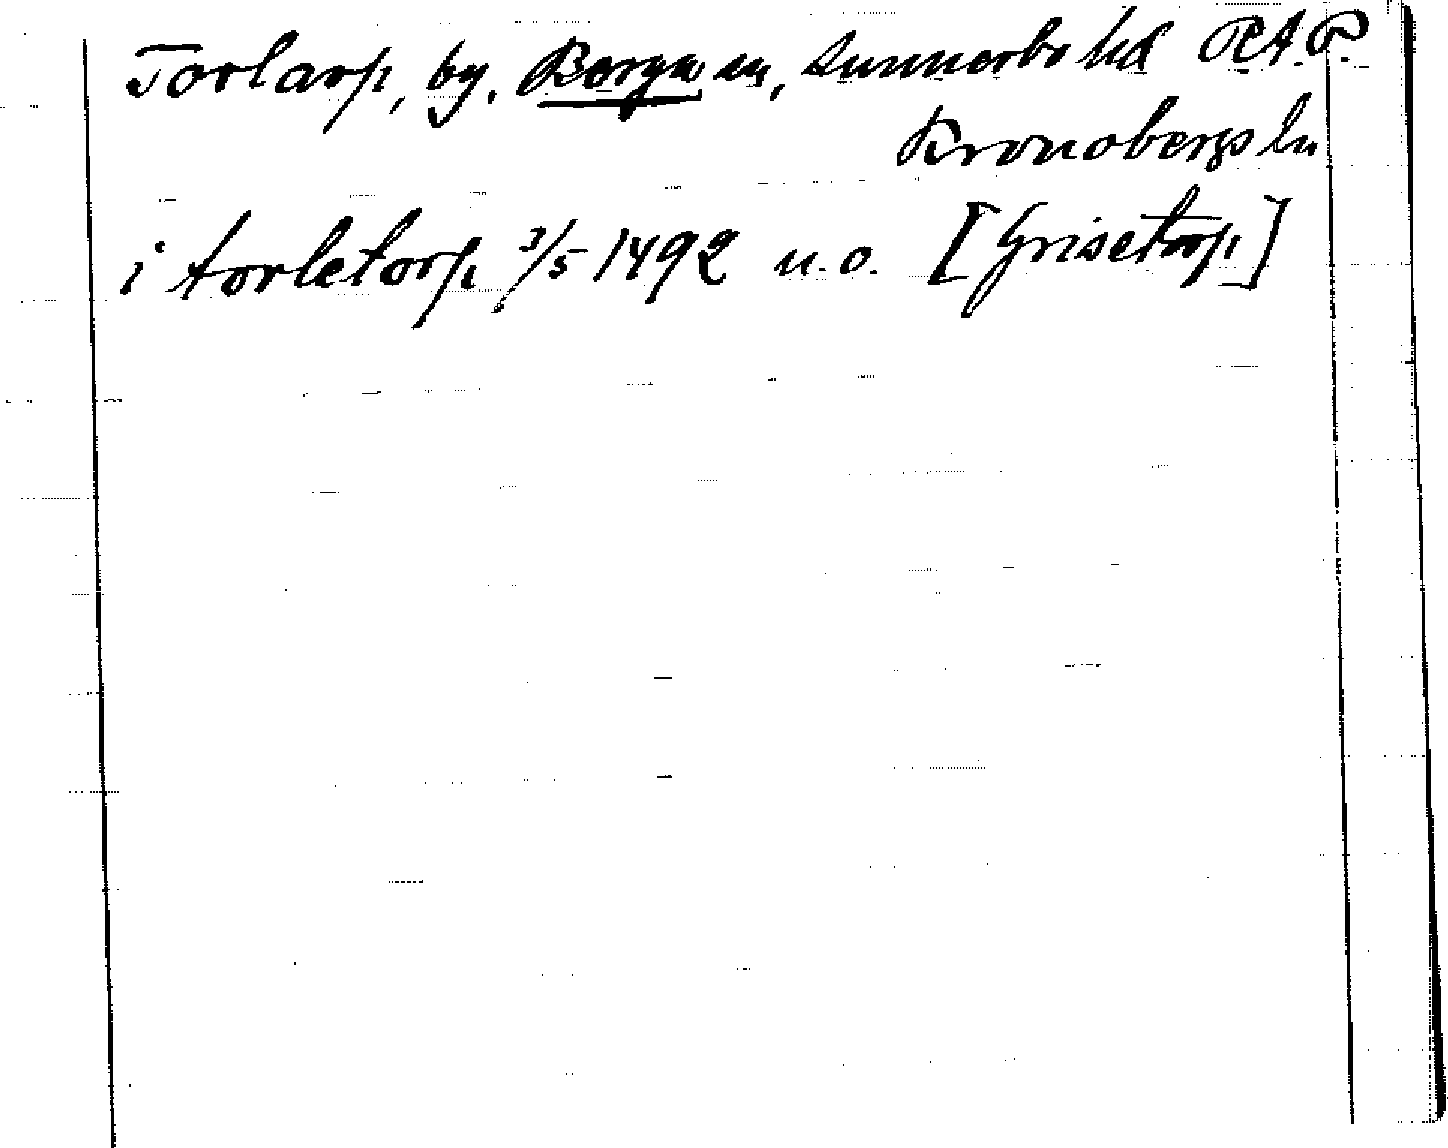 Torlarp, by, Berga sn, Sunnerbo hd R.A.P.
Kronobergs ln
i torletorp 3/5 1492 u.o. [Grisetorp]